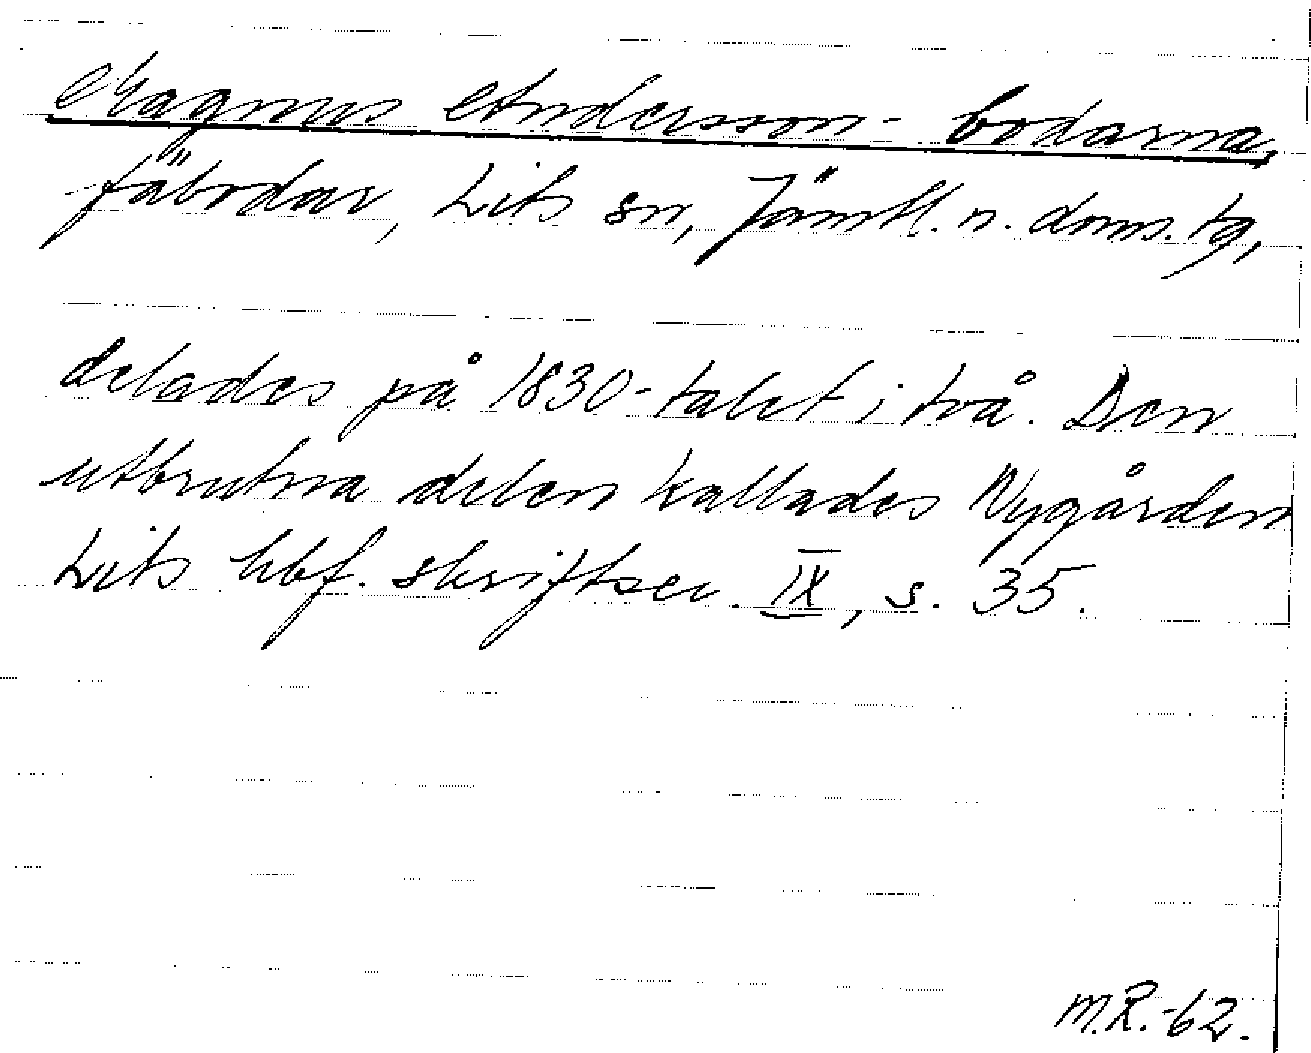 Magnus Andersson-bodarna,
fäbodar, Lits sn, Jämtl. n. doms. tg,
delades på 1830-talet i två. Den
utbrutna delen kallades Nygården
Lits hbf. skriftser. IX, s. 35.
M.R.-62.